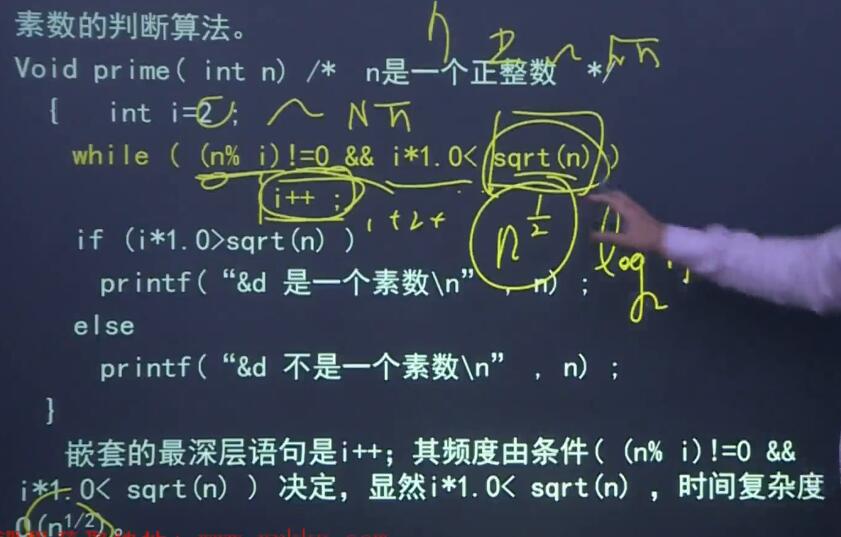 素数的判断算法。
Void prime( int n) /* n是一个正整数 */
{ int i=2 ;
while ( (n% i)!=0 && i*1.0< sqrt(n) )
i++ ;
if (i*1.0>sqrt(n) )
printf( “&d 是一个素数\n” , n) ;
else
printf( “&d 不是一个素数\n” , n) ;
}
嵌套的最深层语句是i++；其频度由条件( (n% i)!=0 &&
i*1.0< sqrt(n) ) 决定，显然i*1.0< sqrt(n) ，时间复杂度
O(n1/2)。
n 2 ~ √n
~ √n
1+2+
n 1/2
log 2